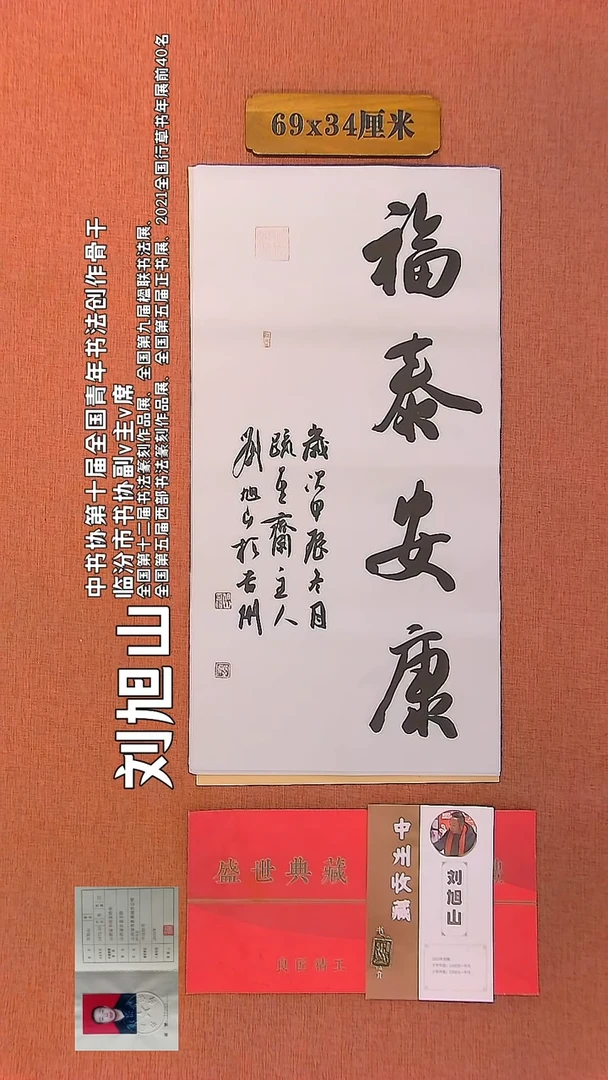 69x34厘米
福泰安康
歲次甲辰冬月
疏影齋主人
劉旭山於古州
中书协第十届全国青年书法创作骨干
临汾市书协副v主v席
全国第十二届书法篆刻作品展、全国第九届楹联书法展、
全国第五届西部书法篆刻作品展、全国第五届正书展、2021全国行草书年展前40名
刘旭山
盛世典藏
中州收藏
刘旭山